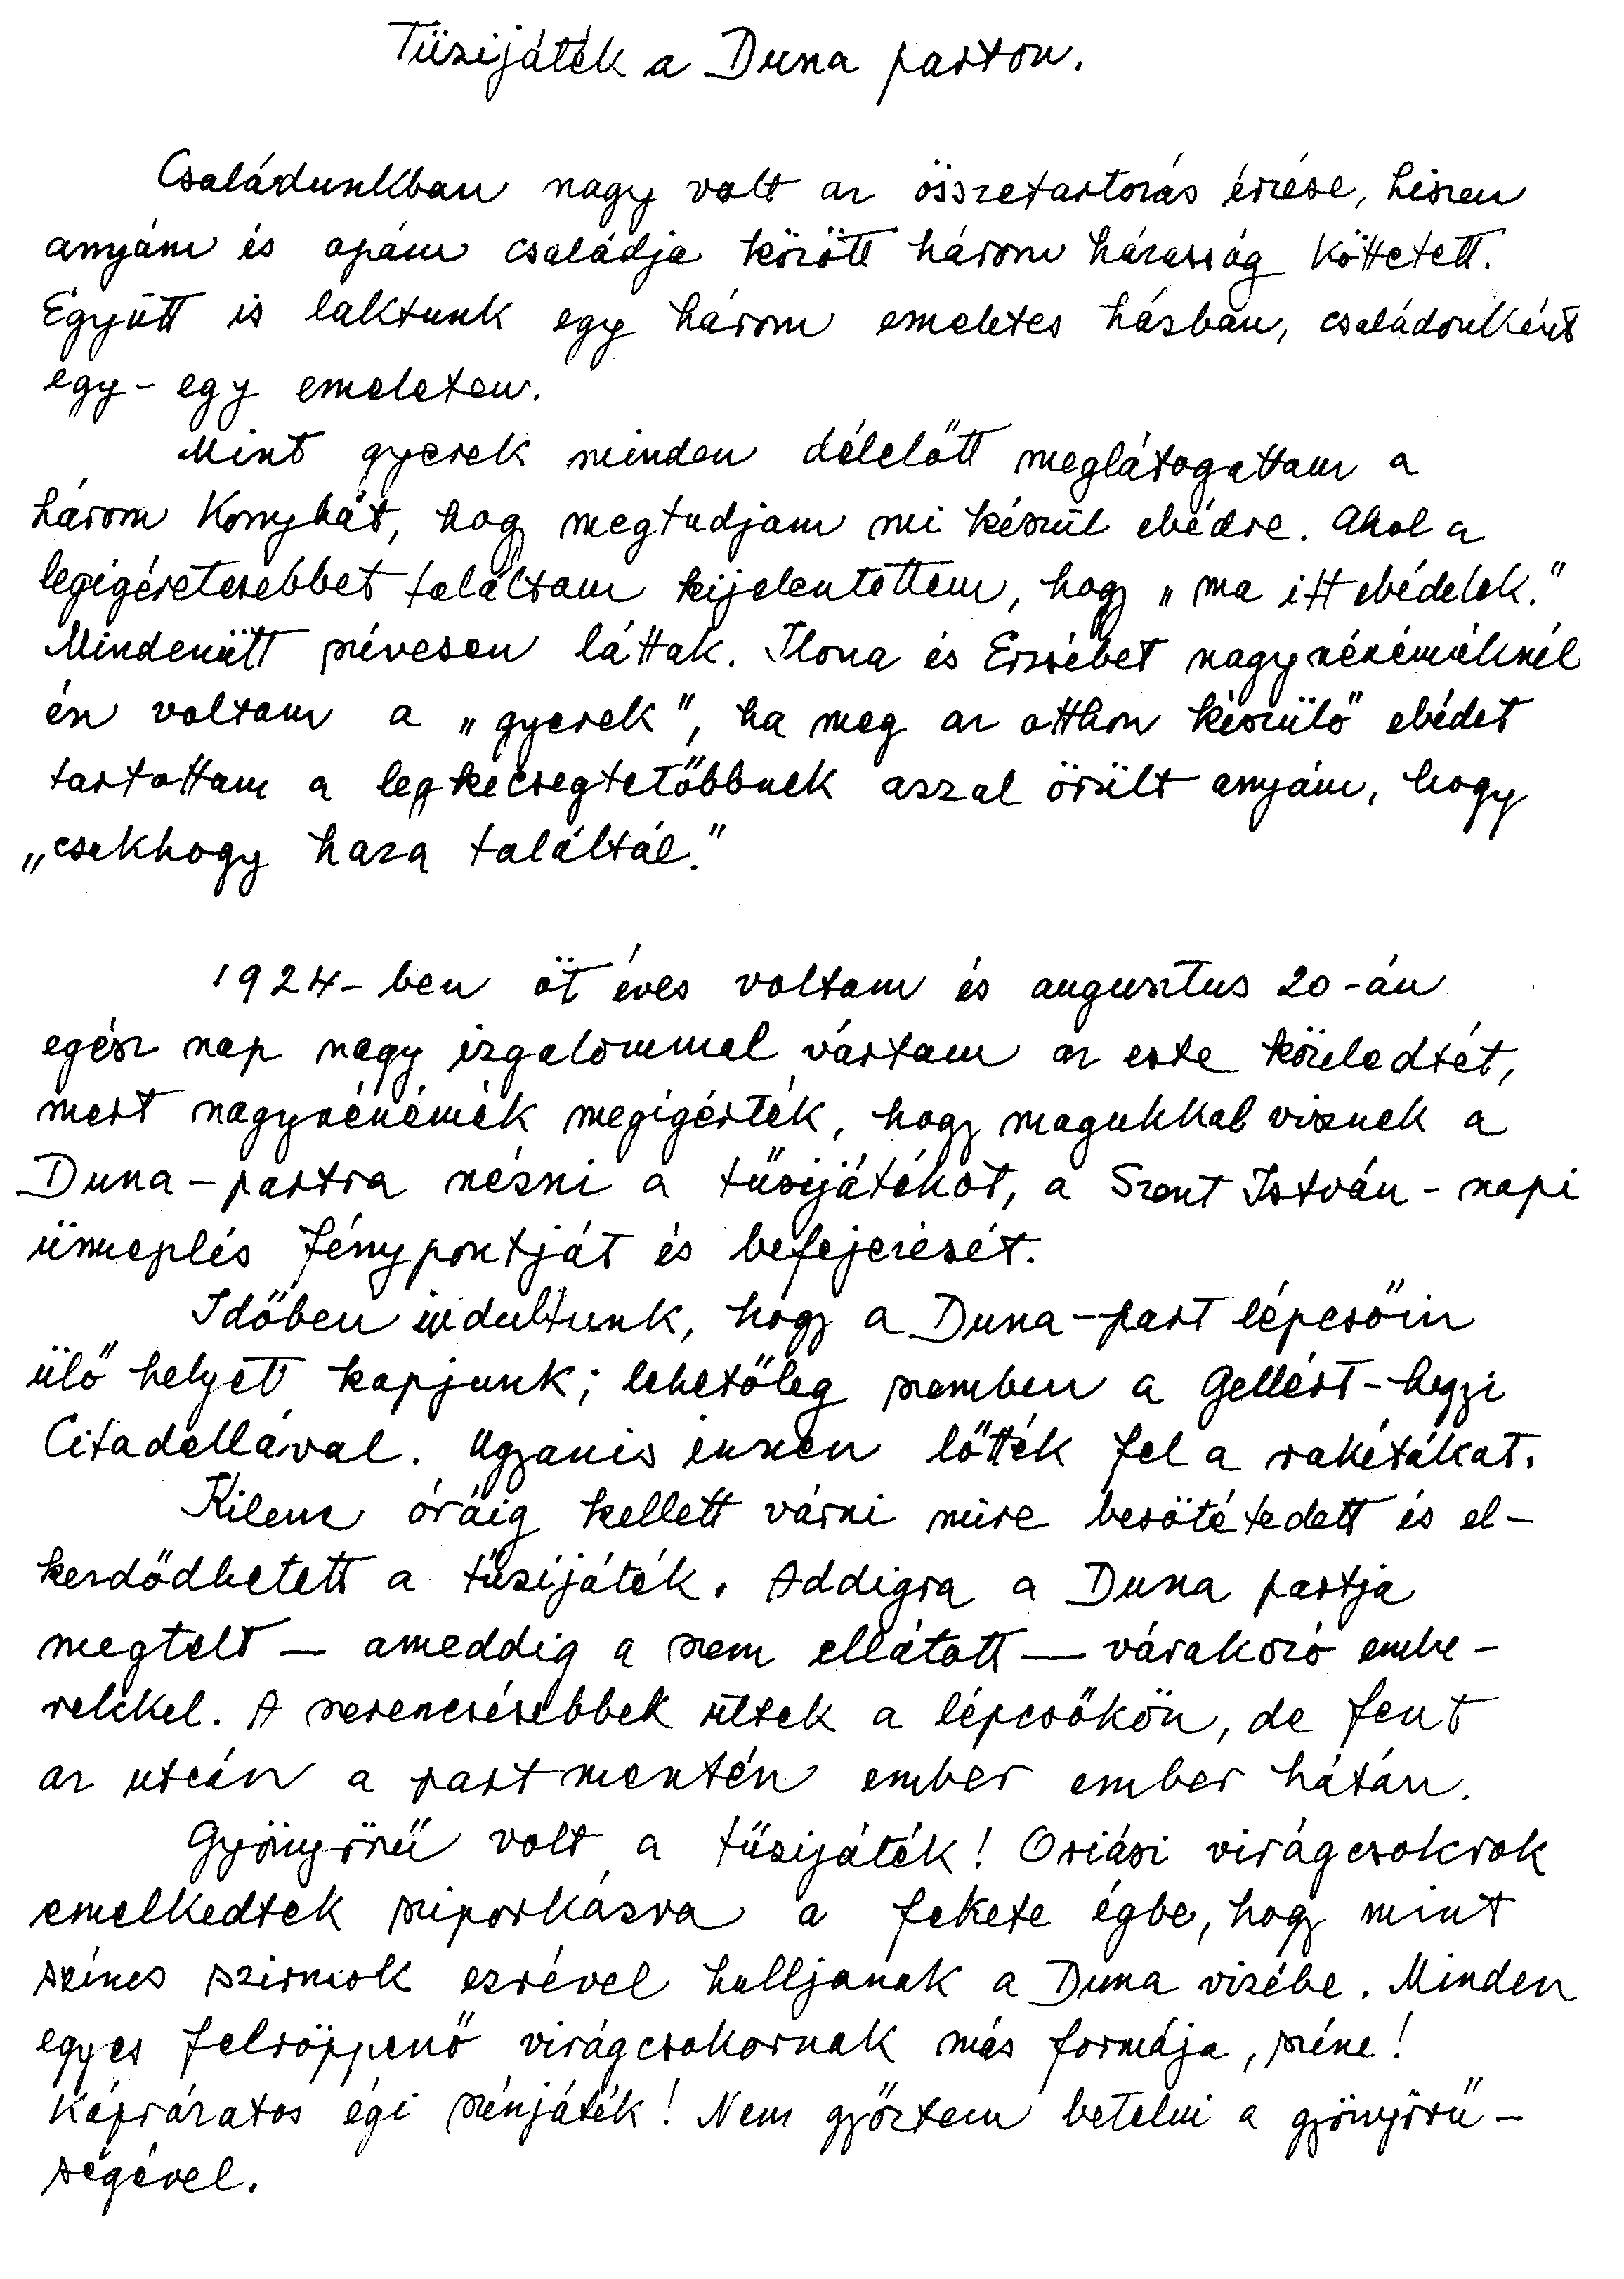 Tüzijáték a Duna parton.
Családunkban nagy volt az összetartozás érzése, hiszen
anyám és apám családja között három házasság köttetett.
Együtt is laktunk egy három emeletes házban, családonként
egy-egy emeleten.
Mint gyerek minden délelőtt meglátogattam a
három konyhát, hogy megtudjam mi készül ebédre. Ahol a
legigéretesebbet találtam kijelentettem, hogy „ma itt ebédelek."
Mindenütt szívesen láttak. Ilona és Erzsébet nagynénéméknél
én voltam a „gyerek", ha meg az otthon készülő ebédet
tartottam a legkecsegtetőbbnek azzal örült anyám, hogy
„csakhogy haza találtál."
1924-ben öt éves voltam és augusztus 20-án
egész nap nagy izgalommal vártam az este közeledtét,
mert nagynénémék megigérték, hogy magukkal visznek a
Duna-partra nézni a tűzijátékot, a Szent István-napi
ünneplés fénypontját és befejezését.
Időben indultunk, hogy a Duna-part lépcsőin
ülő helyet kapjunk; lehetőleg szemben a Gellért-hegyi
Citadellával. Ugyanis innen lőtték fel a rakétákat.
Kilenc óráig kellett várni mire besötétedett és el-
kezdődhetett a tüzijáték. Addigra a Duna partja
megtelt — ameddig a szem ellátott — várakozó embe-
rekkel. A szerencsésebbek ültek a lépcsőkön, de fent
az utcán a part mentén ember ember hátán.
Gyönyörű volt a tűzijáték! Óriási virágcsokrok
emelkedtek sziporkázva a fekete égbe, hogy mint
színes szirmok ezrével hulljanak a Duna vizébe. Minden
egyes felröppenő virágcsokornak más formája, színe!
Káprázatos égi színjáték! Nem győztem betelni a gyönyörű-
ségével.